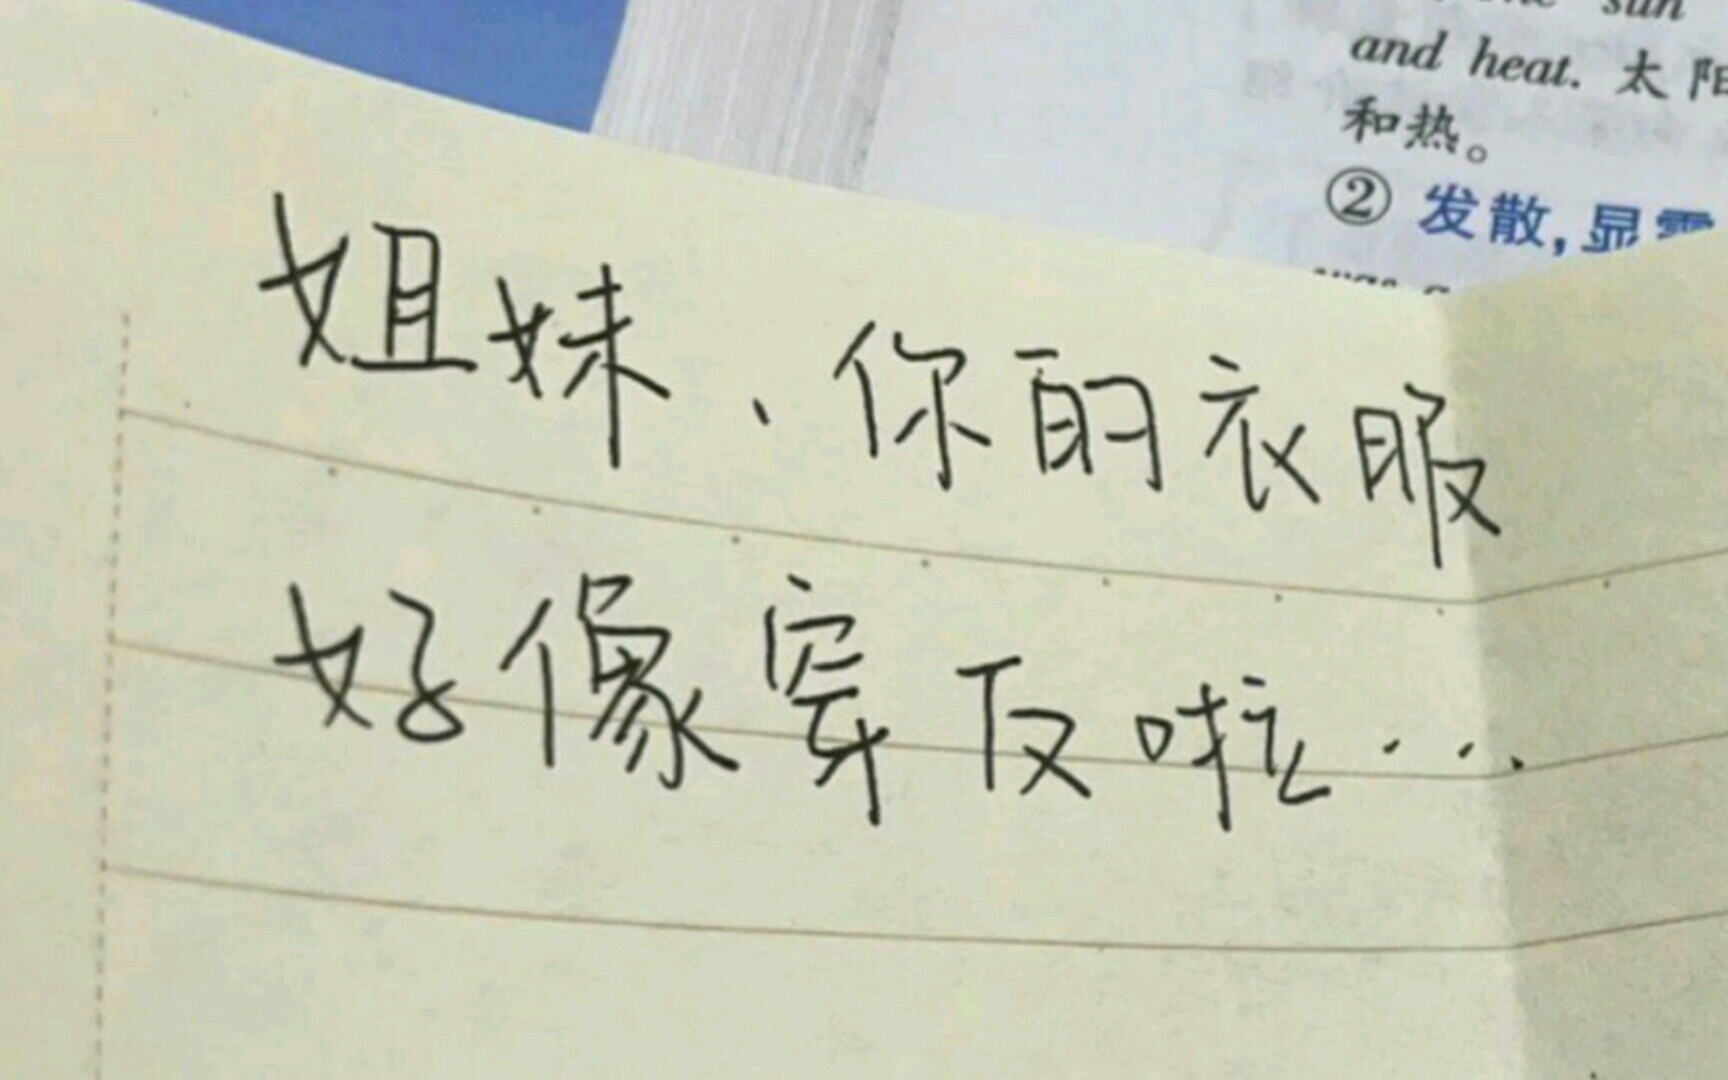 sun
and heat. 太阳
和热。
② 发散,显露
姐妹、你的衣服
好像穿反啦...